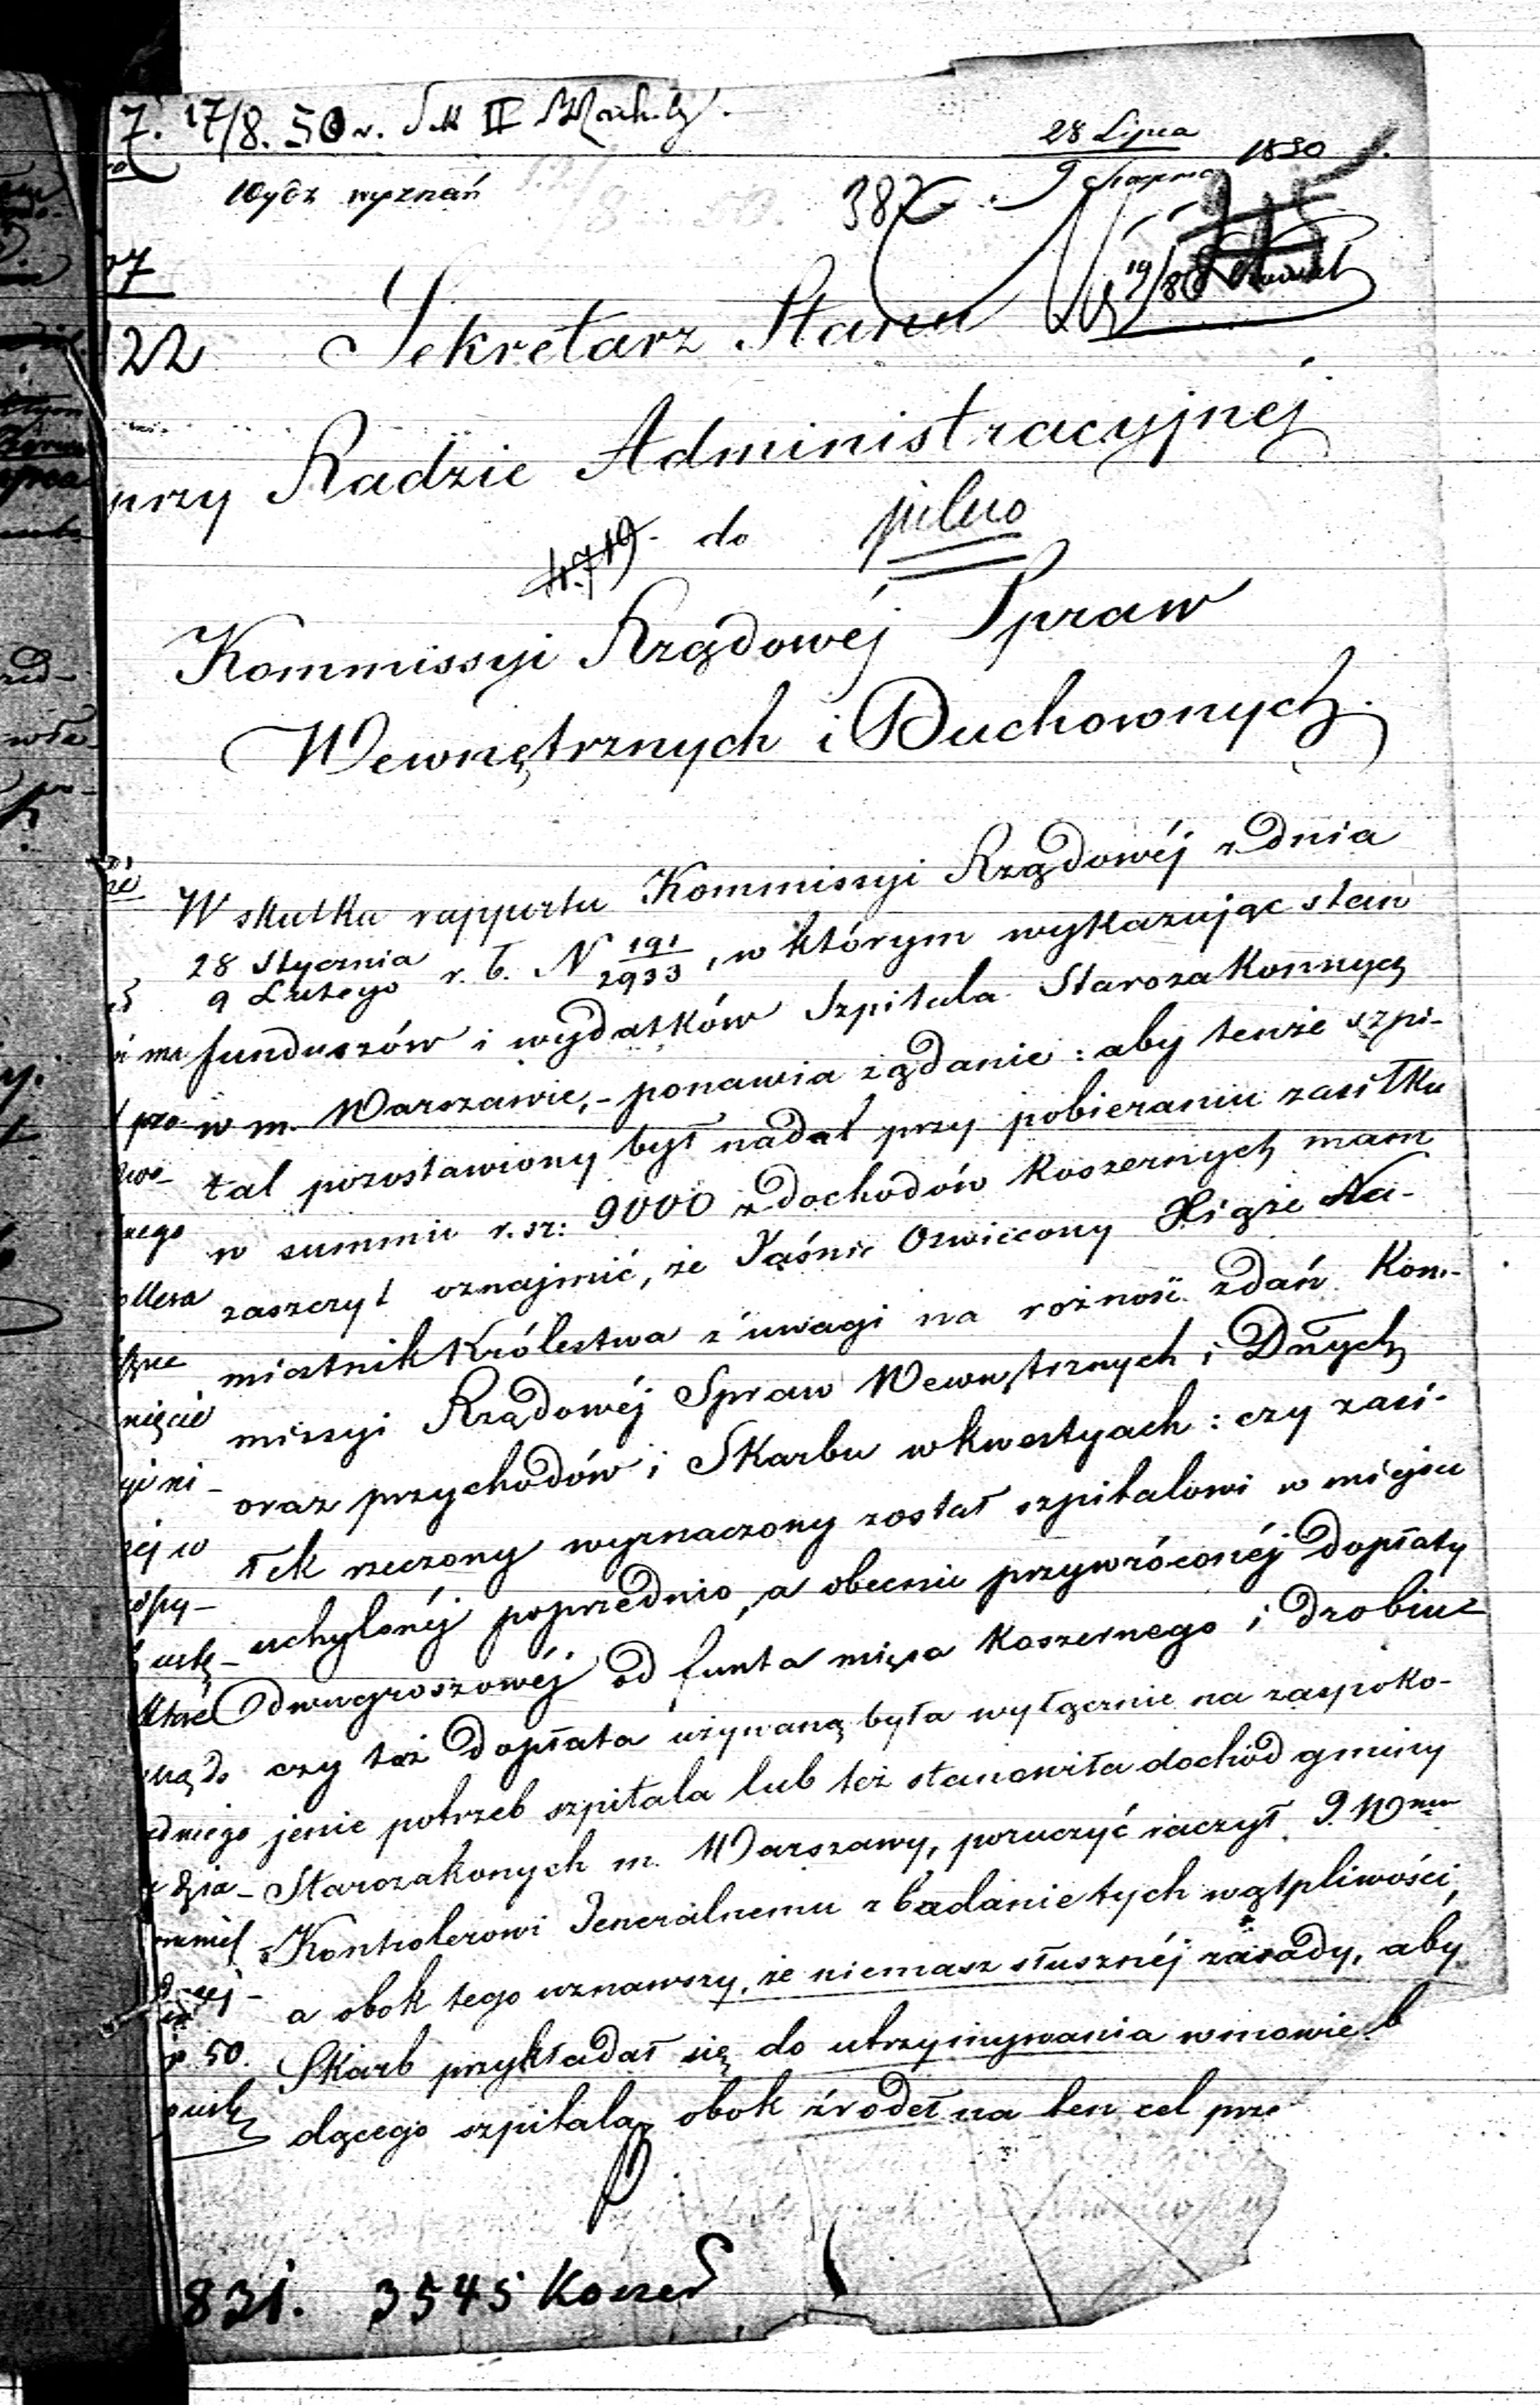 7. 17/8. 50 r. II
28 Lipca
9 Sierpnia 1850
Wydz wyznań
387
19/8
Sekretarz Stanu
22
przy Radzie Administracyjnéj
4.719 do pilno
Kommissyi Rządowéj Spraw
Wewnętrznych i Duchownych.
W skutku rapportu Kommissyi Rządowéj z dnia
28 Stycznia
9 Lutego r. b. N 191/2933, w którym wykazując stan
funduszów i wydatków Szpitala Starozakonnych
w m. Warszawie, - ponawia żądanie: aby tenże szpi-
tal pozostawiony był nadal przy pobieraniu zasiłku
w summie r. sr: 9000 z dochodów koszernych mam
zaszczyt oznajmić, że Jaśnie Oświecony Xiąże Na-
miestnik Królestwa z uwagi na rożność zdań Kom-
missyi Rządowéj Spraw Wewnętrznych i Dnych
oraz przychodów i Skarbu w kwestyach: czy zasi-
łek rzeczony wyznaczony został szpitalowi w miejsu
uchylonéj poprzednio, a obecnie przywróconéj dopłaty
dwugroszowéj od funta mięsa koszernego i drobiu
czy taż dopłata używaną była wyłącznie na zaspoko-
jenie potrzeb szpitala lub też stanowiła dochód gminy
Starozakonych m. Warszawy, poruczyć raczył J. Wmu
Kontrolerowi Jeneralnemu zbadanie tych wątpliwości,
a obok tego uznawszy, że niemasz słusznéj zasady, aby
Skarb przykładał się do utrzymywania w mowie b
dącego szpitala, obok źrodeł na ten cel prze
831. 3545 Koszer